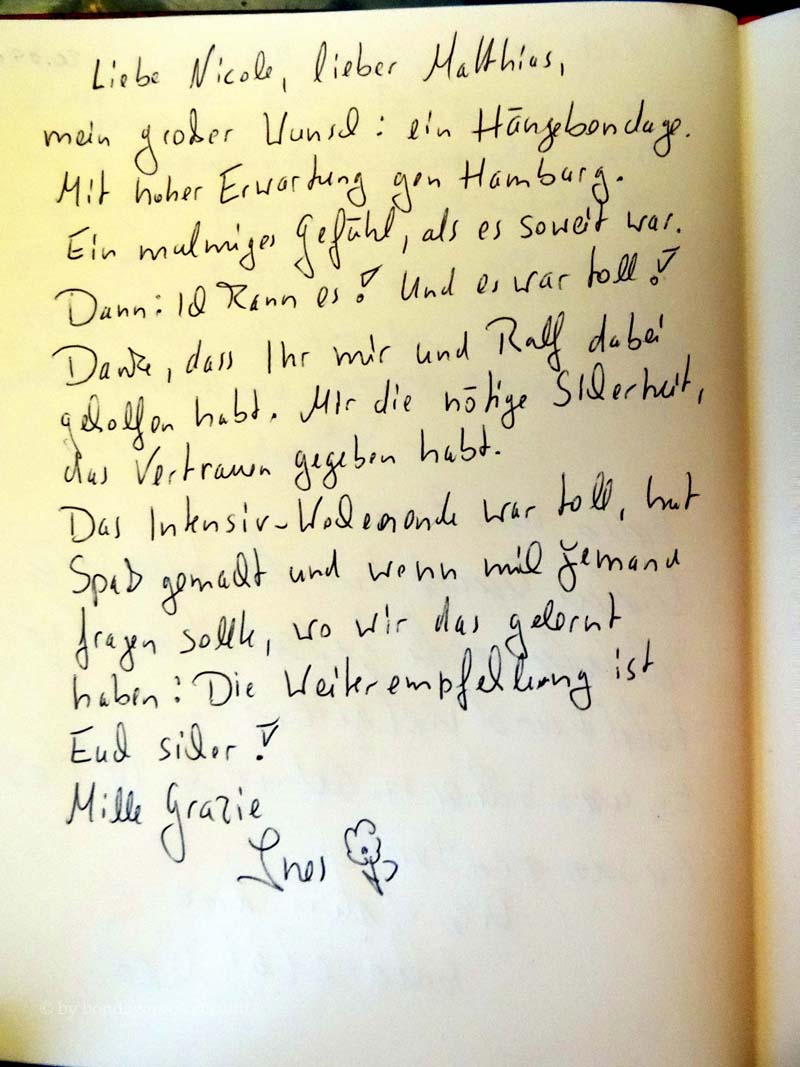 Liebe Nicole, lieber Matthias,
mein großer Wunsch: ein Hängebondage.
Mit hoher Erwartung gen Hamburg.
Ein mulmiges Gefühl, als es soweit war.
Dann: Ich kann es! Und es war toll!
Danke, dass Ihr mir und Ralf dabei
geholfen habt. Mir die nötige Sicherheit,
das Vertrauen gegeben habt.
Das Intensiv-Wochenende war toll, hat
Spaß gemacht und wenn mich jemand
fragen sollte, wo wir das gelernt
haben: Die Weiterempfehlung ist
Euch sicher!
Mille Grazie
Ines
© by